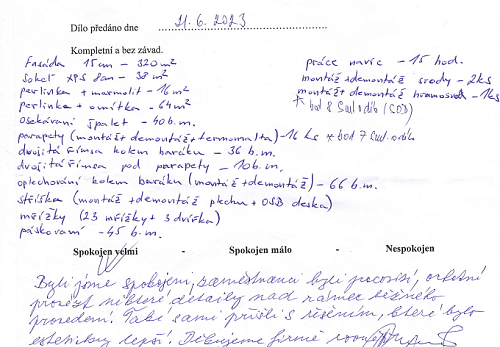 Dílo předáno dne 21.6.2023
Kompletní a bez závad.
Fasáda 15cm - 320 m²
Sokel XPS 8cm - 38 m²
perlinka + marmolit - 16 m²
perlinka + omítka - 64 m²
osekávání špalet - 40 b.m.
parapety (montáž + demontáž + termomalta) - 16 ks * bod 7 SoD
dvojitá římsa kolem baráku - 36 b.m.
dvojitá římsa pod parapety - 10 b.m.
oplechování kolem baráku (montáž + demontáž) - 66 b.m.
stříška (montáž + demontáž plechu + OSB deska)
mřížky (23 mřížky + 3 dvířka)
páskování - 45 b.m.
práce navíc - 15 hod.
montáž + demontáž svody - 2ks
montáž + demontáž hromosvod - 1ks
* bod 8 (SOD)
Spokojen velmi - Spokojen málo - Nespokojen
Byli jsme spokojeni, zaměstnanci byli pracovití, ochotni
provést některé detaily nad rámec běžného
provedení. Také sami přišli s řešením, které bylo
esteticky lepší. Děkujeme firmě